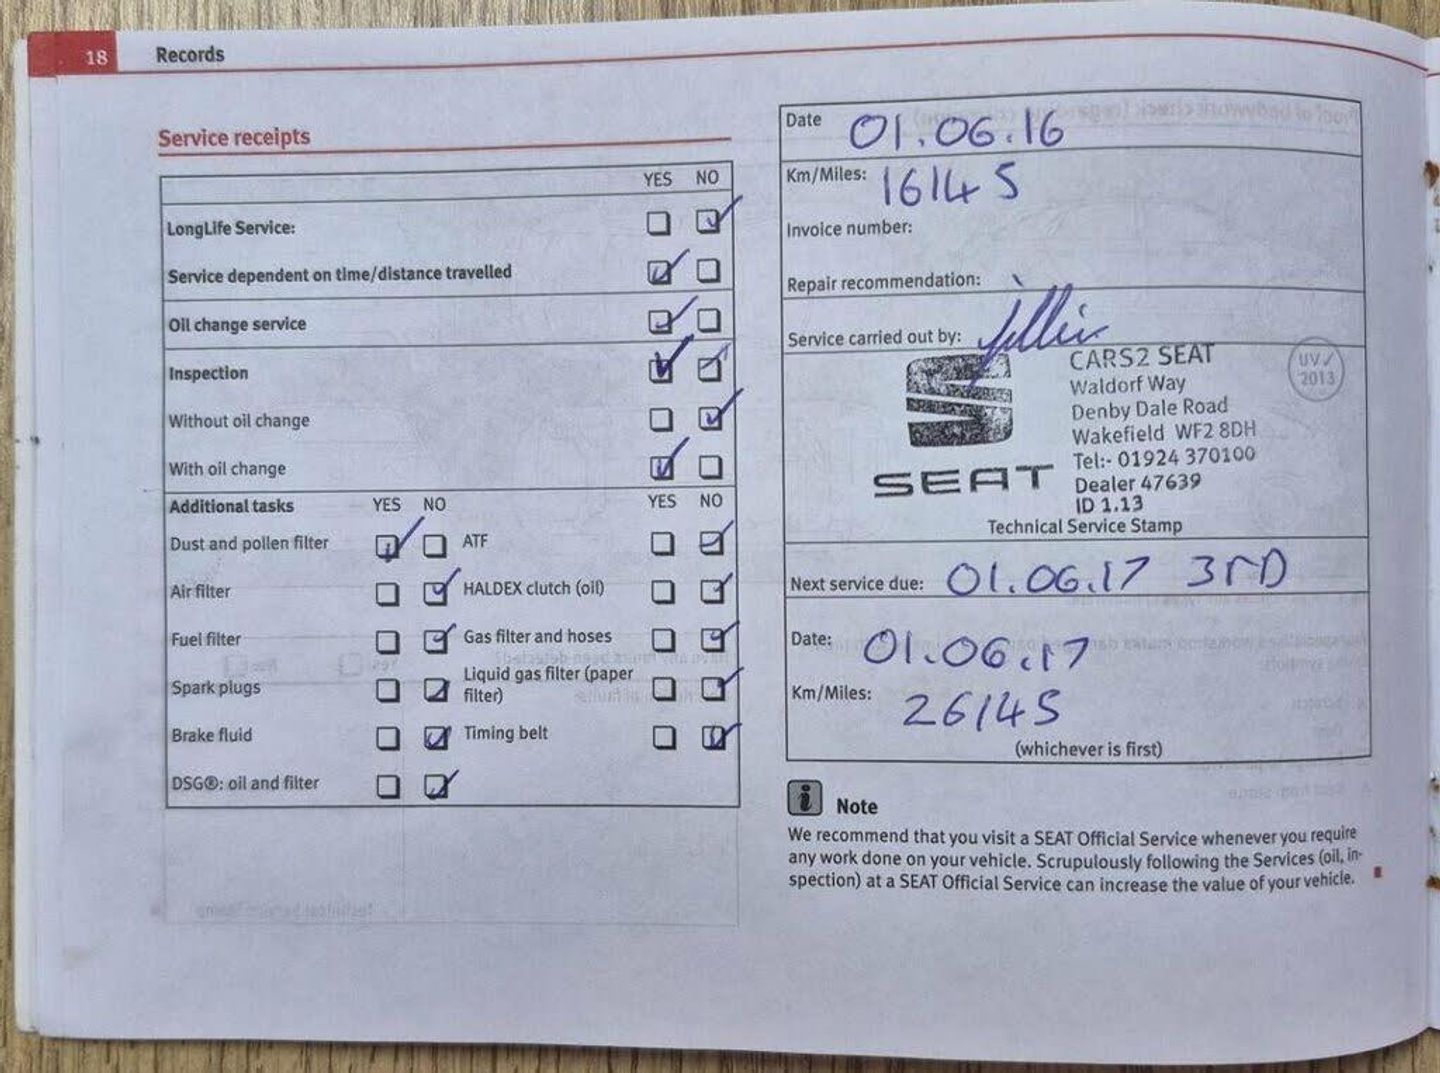 18 Records
Service receipts
YES NO
LongLife Service:
Service dependent on time/distance travelled
Oil change service
Inspection
Without oil change
With oil change
Additional tasks YES NO YES NO
Dust and pollen filter ATF
Air filter HALDEX clutch (oil)
Fuel filter Gas filter and hoses
Spark plugs Liquid gas filter (paper
filter)
Brake fluid Timing belt
DSG®: oil and filter
Date 01.06.16
Km/Miles: 16145
Invoice number:
Repair recommendation:
Service carried out by:
CARS2 SEAT
Waldorf Way
Denby Dale Road
Wakefield WF2 8DH
Tel:- 01924 370100
Dealer 47639
ID 1.13
UV✓
2013
SEAT
Technical Service Stamp
Next service due: 01.06.17 3RD
Date: 01.06.17
Km/Miles: 26145
(whichever is first)
i Note
We recommend that you visit a SEAT Official Service whenever you require
any work done on your vehicle. Scrupulously following the Services (oil, in-
spection) at a SEAT Official Service can increase the value of your vehicle.